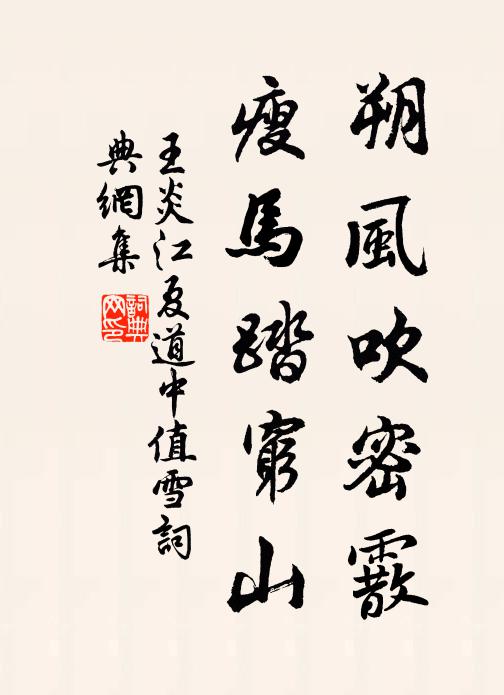 朔風吹密霰
瘦馬踏窮山
王炎江夏道中值雪詞
典網集
詞典网印